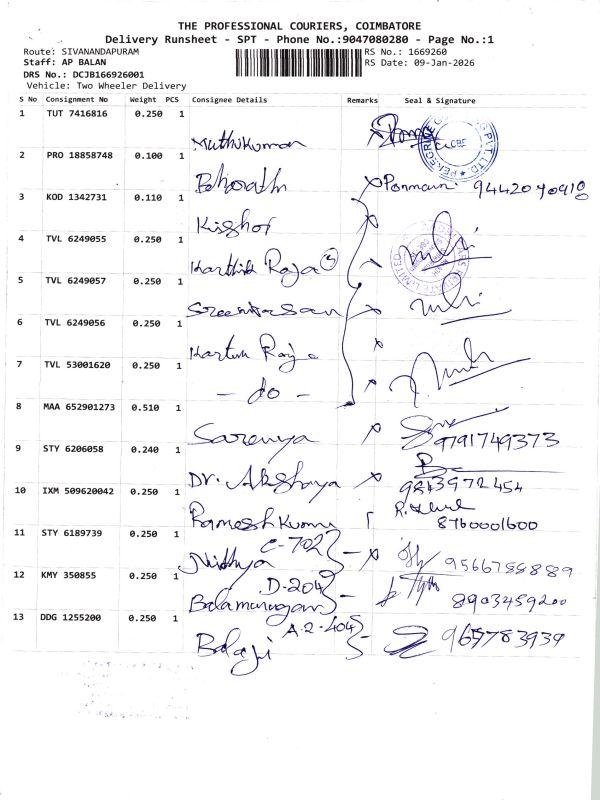 THE PROFESSIONAL COURIERS, COIMBATORE
Delivery Runsheet - SPT - Phone No.:9047080280 - Page No.:1
Route: SIVANANDAPURAM RS No.: 1669260
Staff: AP BALAN RS Date: 09-Jan-2026
DRS No.: DCJB166926001
Vehicle: Two Wheeler Delivery
S No Consignment No Weight PCS Consignee Details Remarks Seal & Signature
1 TUT 7416816 0.250 1 Muthikumar
2 PRO 18858748 0.100 1 Bharath
3 KOD 1342731 0.110 1 Kishor
4 TVL 6249055 0.250 1 Karthik Raja
5 TVL 6249057 0.250 1 Sreenivasan
6 TVL 6249056 0.250 1
7 TVL 53001620 0.250 1 - do -
8 MAA 652901273 0.510 1 Saranya 9791749373
9 STY 6206058 0.240 1 Dr. Akshaya 9843972454
10 IXM 509620042 0.250 1 Ramesh Kumar 8760001600
11 STY 6189739 0.250 1 Nithya C-702
12 KMY 350855 0.250 1 Balamurugan D-204 8903459200
13 DDG 1255200 0.250 1 Balaji A-2-404